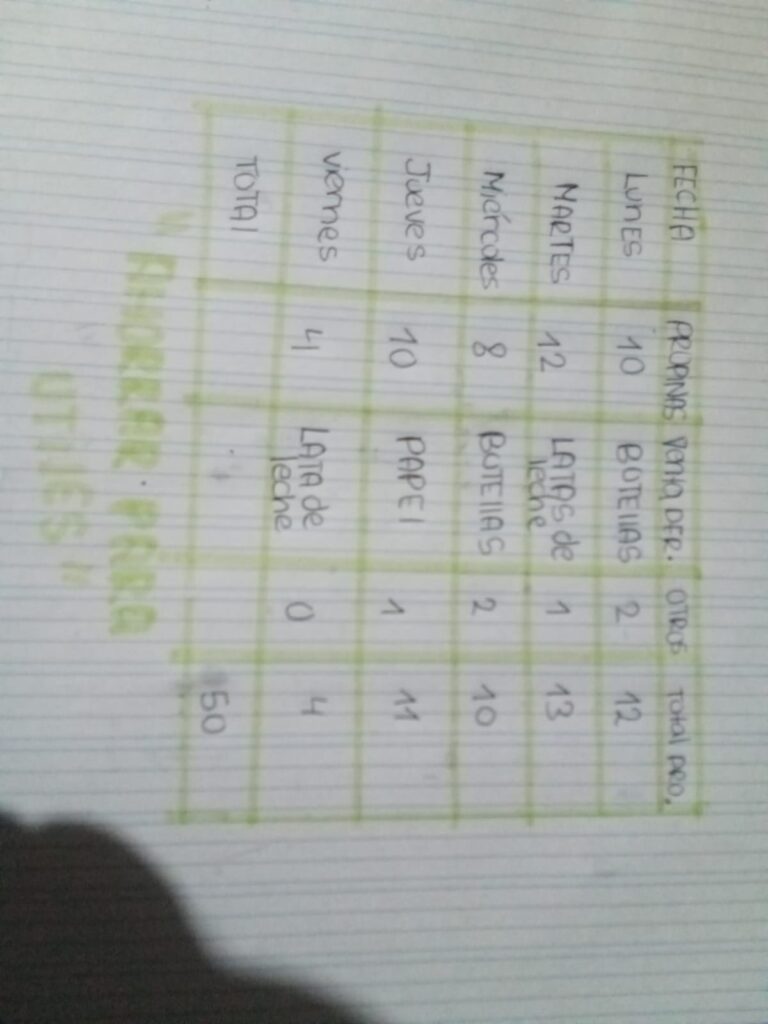 FECHA PROPINAS Venta DER. OTROS Total PRO.
LUNES 10 BOTEllAS 2 12
MARTES 12 LATAS de leche 1 13
Miércoles 8 BOTEllAS 2 10
Jueves 10 PAPEl 1 11
viernes 4 LATA de leche 0 4
TOTAl 50
"AHORRAR PARA
UTILES"